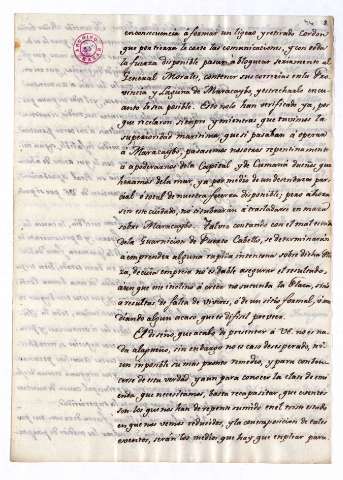 en consecuencia á formar un ligero y retirado Cordon
que pretirara la corte las comunicaciones, y con toda
la fuerza disponible pasar á bloquear seriamente al
General Morales, contener sus correrías en la Pro-
vincia y Laguna de Maracaybo, y estrecharlo en cu-
anto lo sea posible. Esto no lo han verificado ya, por
que recelaron siempre y mientras que tuvimos la
superioridad maritima, que si pasaban á operar
á Maracaybo, pasasemos nosotros repentinamente
á apoderarnos de la Capital y de Cumaná dueños que
heramos de la mar, y a por medio de un desembarco par-
cial ó total de nuestra fuerza disponible; pero ahora
sin este cuidado, no demorarán á trasladarse en masa
sobre Maracaybo. Tal vez contando con el mal estado
de la Guarnicion de Puerto Cabello, se determinarán
á emprender alguna rapida intentona sobre dicha Pla-
za, de cuia empresa no és dable asegurar el resultado,
aun que me inclino á creer no sucumba la Plaza, sino
á resultas de falta de viveres, ó de un sitio formal, ó me-
diando algun acaso, que es dificil preveer.
El diseño, que acabo de presentar á VE. no es na-
da alagueño, sin embargo no es caso desesperado, ni
imposible su mas pronto remedio, y para conben-
cerse de esta verdad, y aun para conocer la clase de
que necesitamos, basta recapacitar, que eventos
son los que nos han de repente sumido en el triste estado
en que nos vemos reducidos, y la contraposicion de tales
eventos, serán los medios que hay que emplear para